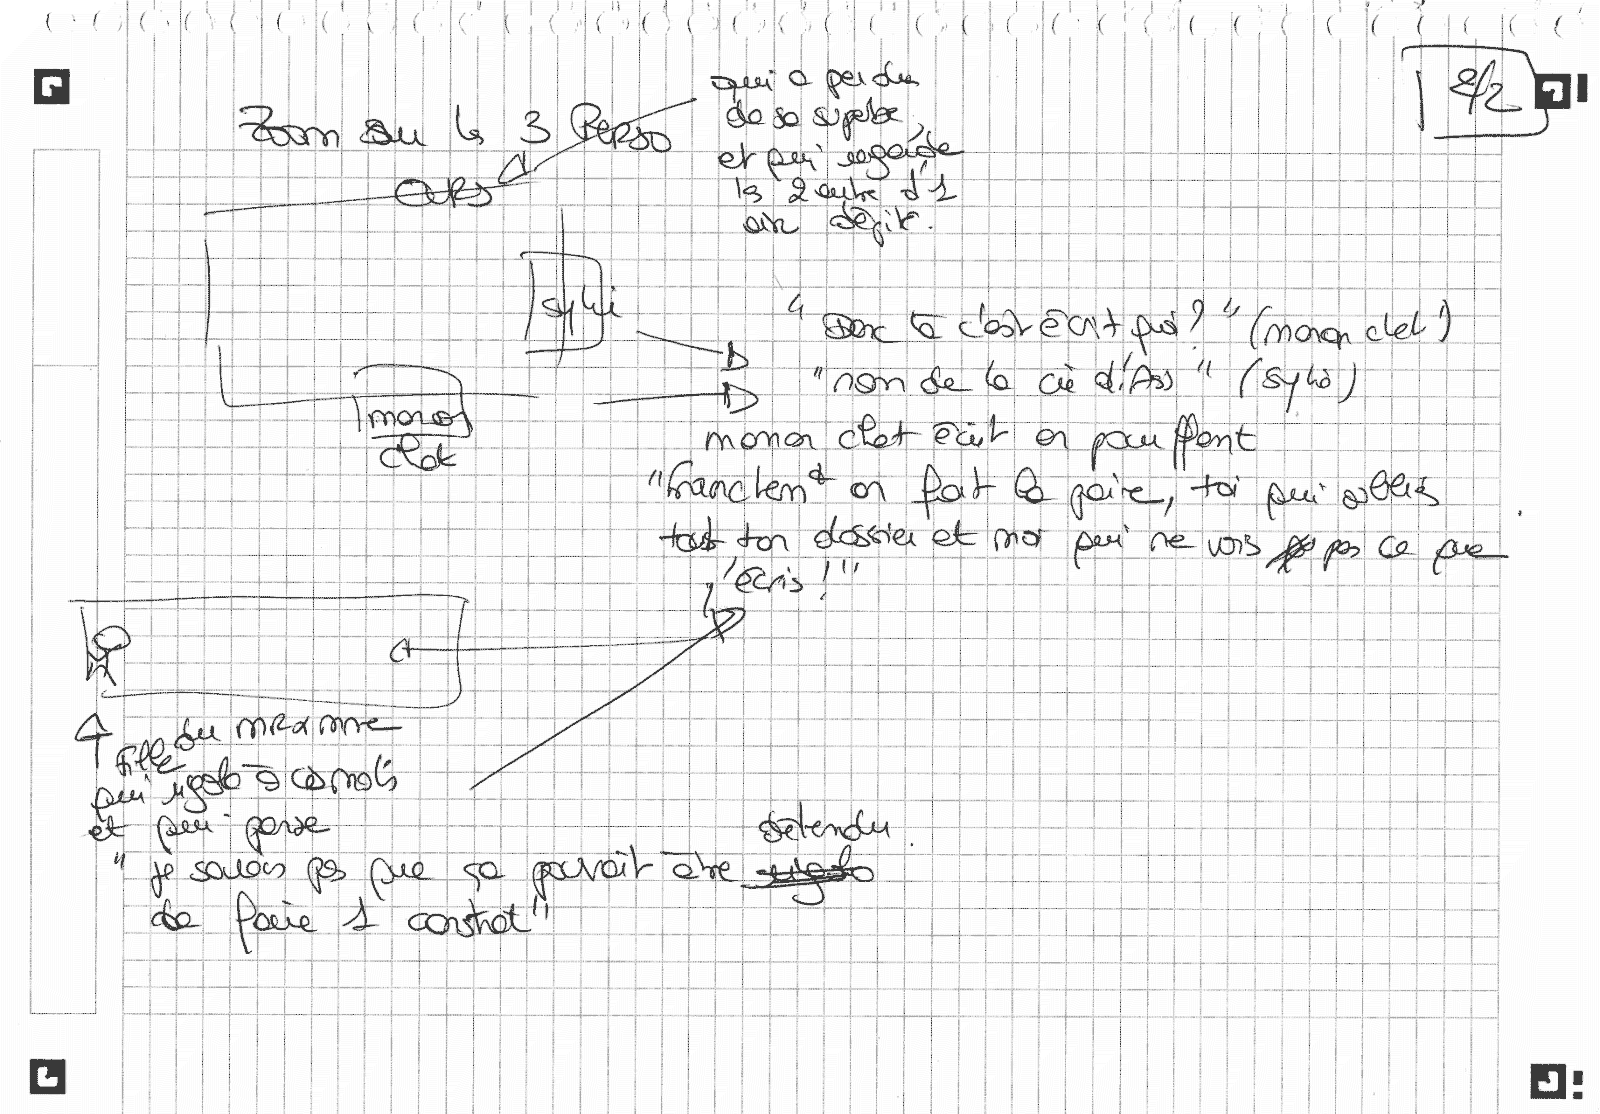 2/2
Zoom su les 3 Perso
OURS
qui a perdu
de sa superbe
et qui regarde
les 2 autre d'1
air dépité.
Sylvi
manon
clot
"Donc là c'est écrit quoi ?" (manon clot)
"nom de la cie d'Ass" (Sylvi)
manon clot écrit en pouffant
"Franclem^t on fait la paire, toi qui oublies
tout ton dossier et moi qui ne vois pas ce que
j'écris !"
Fille du
qui rigole à ces mots
et qui pense
"je savais pas que ça pouvait être détendu
de faire 1 constat"